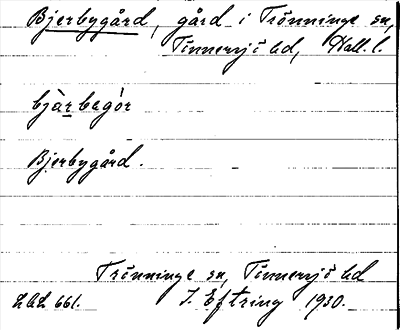 Bjerbygård, gård i Trönninge sn,
Tönnersjö hd, Hall. l.
bjàrbagór
Bjerbygård.
Trönninge sn, Tönnersjö hd
LLA 661. J. Eftring 1930.